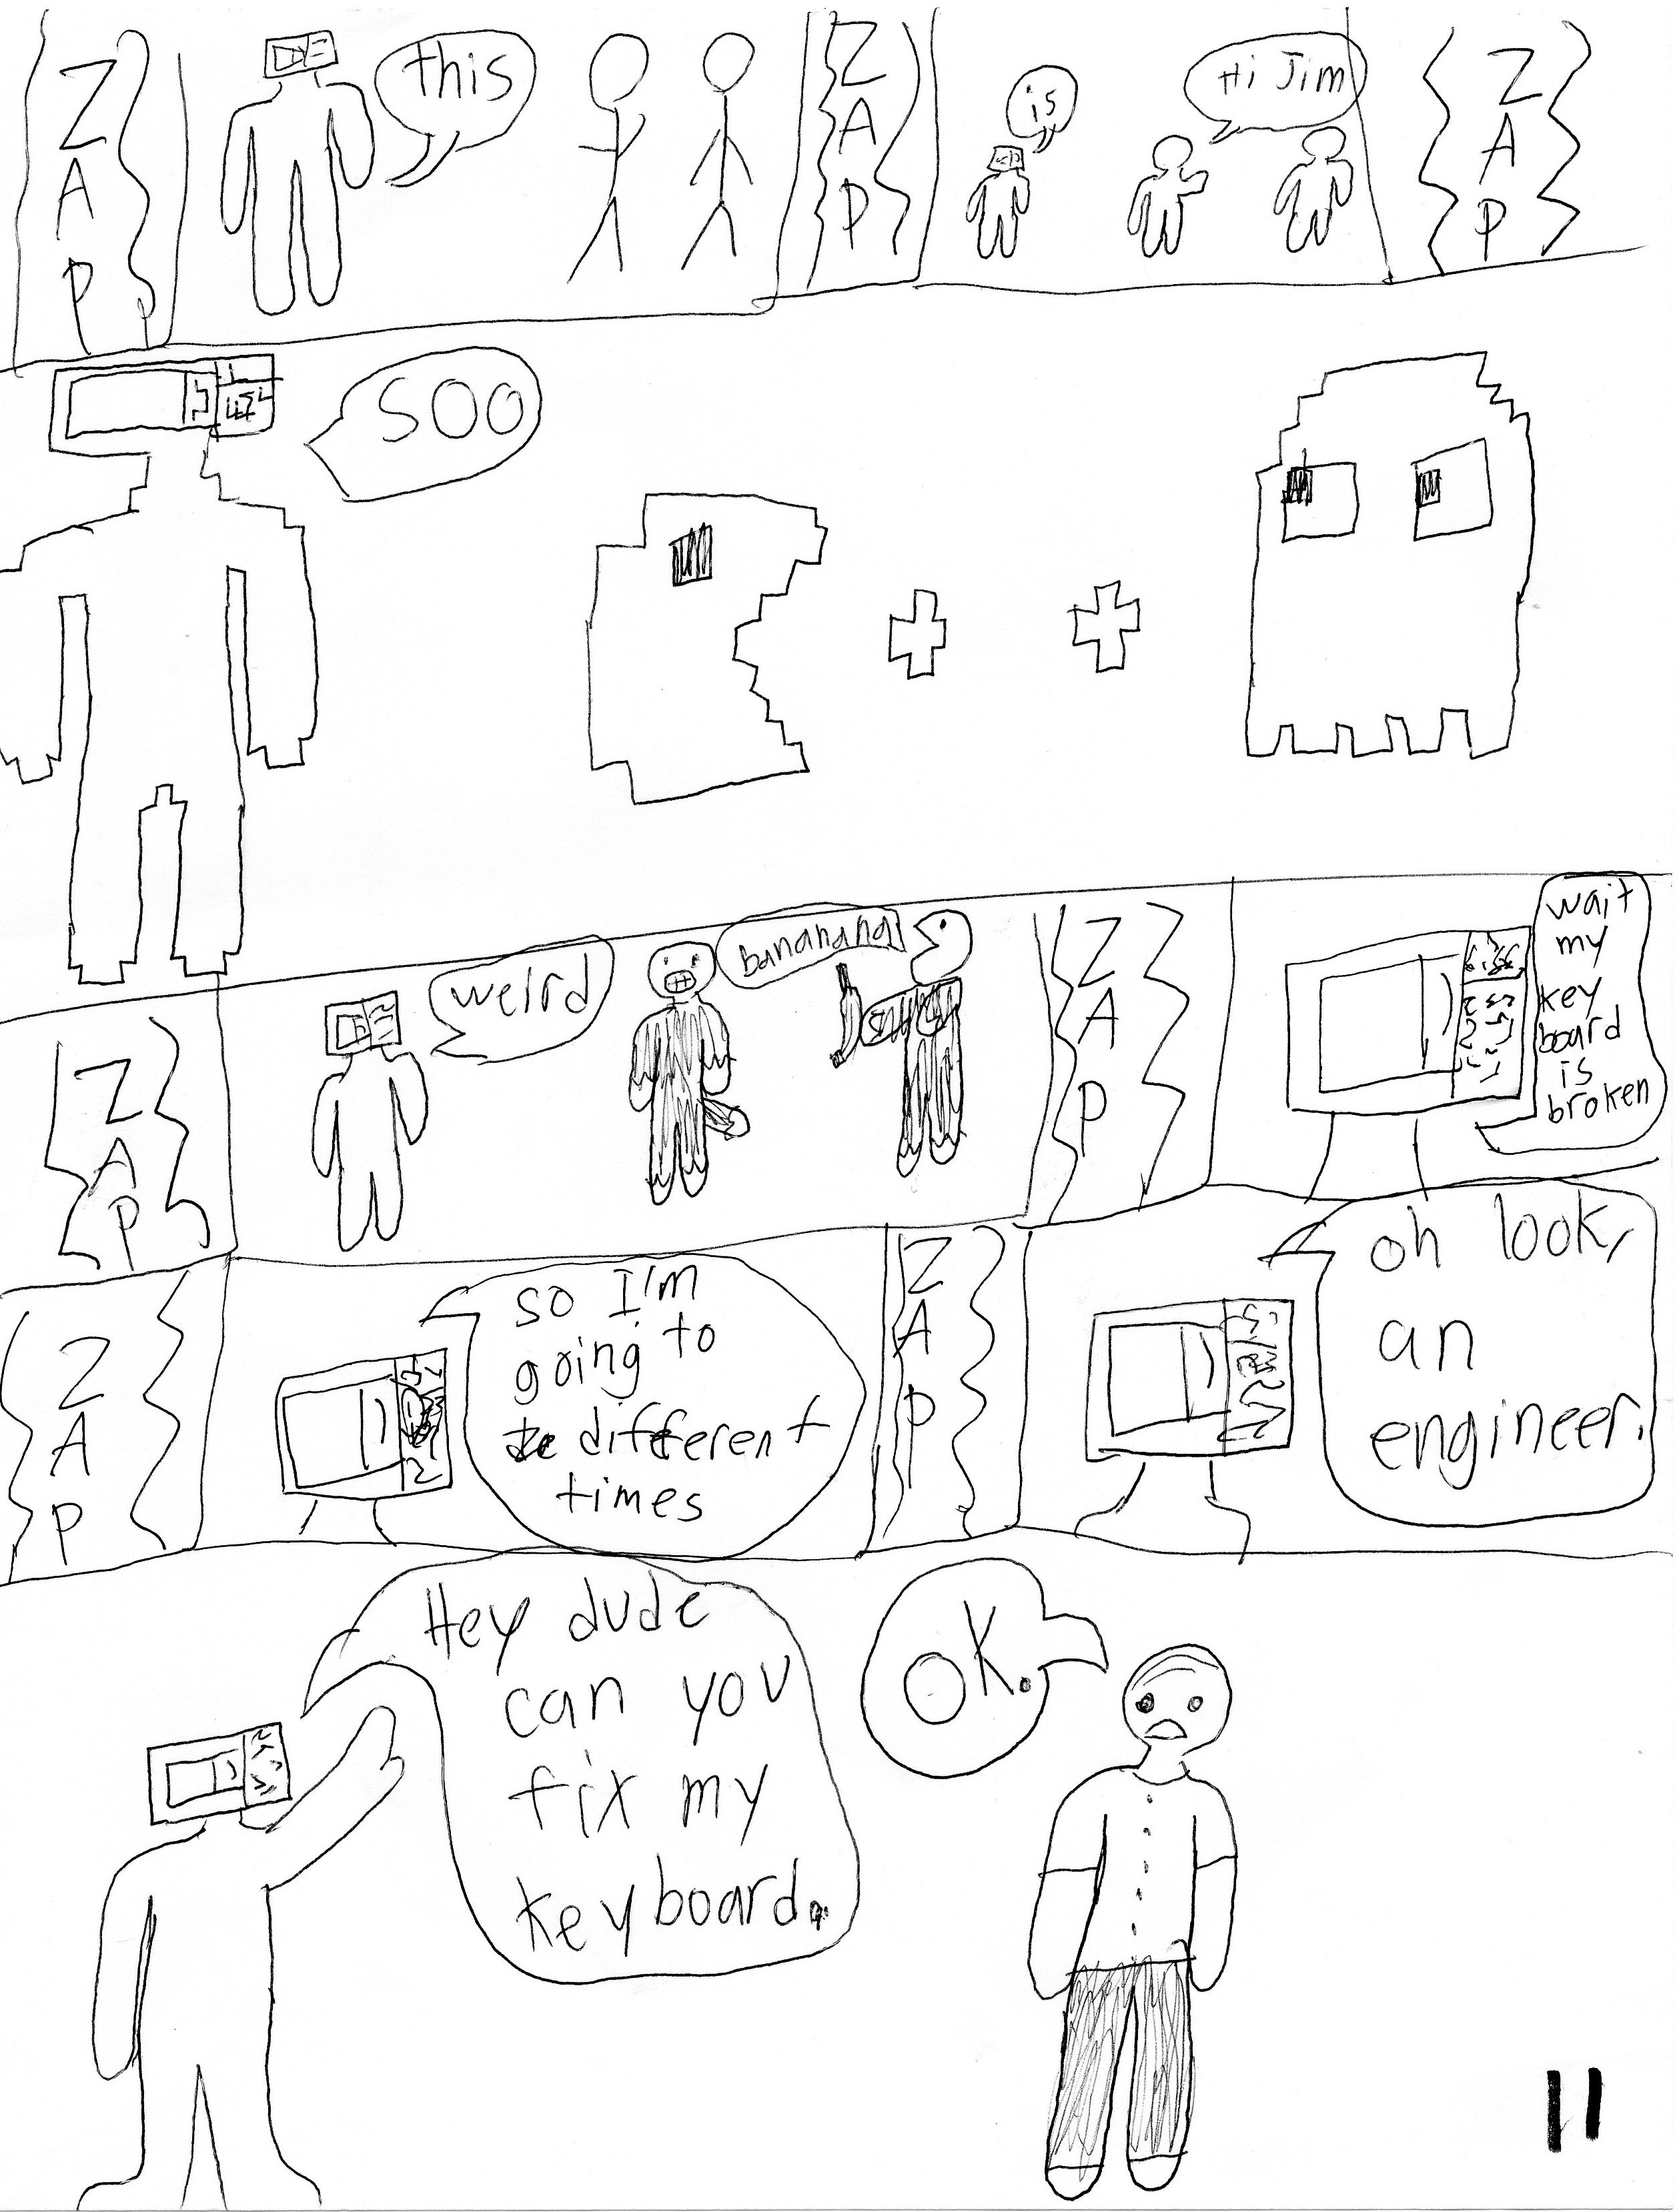 ZAP
this
ZAP
is
Hi Jim
ZAP
SOO
ZAP
weird
bananana
ZAP
wait
my
key
board
is
broken
ZAP
so I'm
going to
different
times
ZAP
oh look,
an
engineer.
Hey dude
can you
fix my
keyboard.
OK.
11